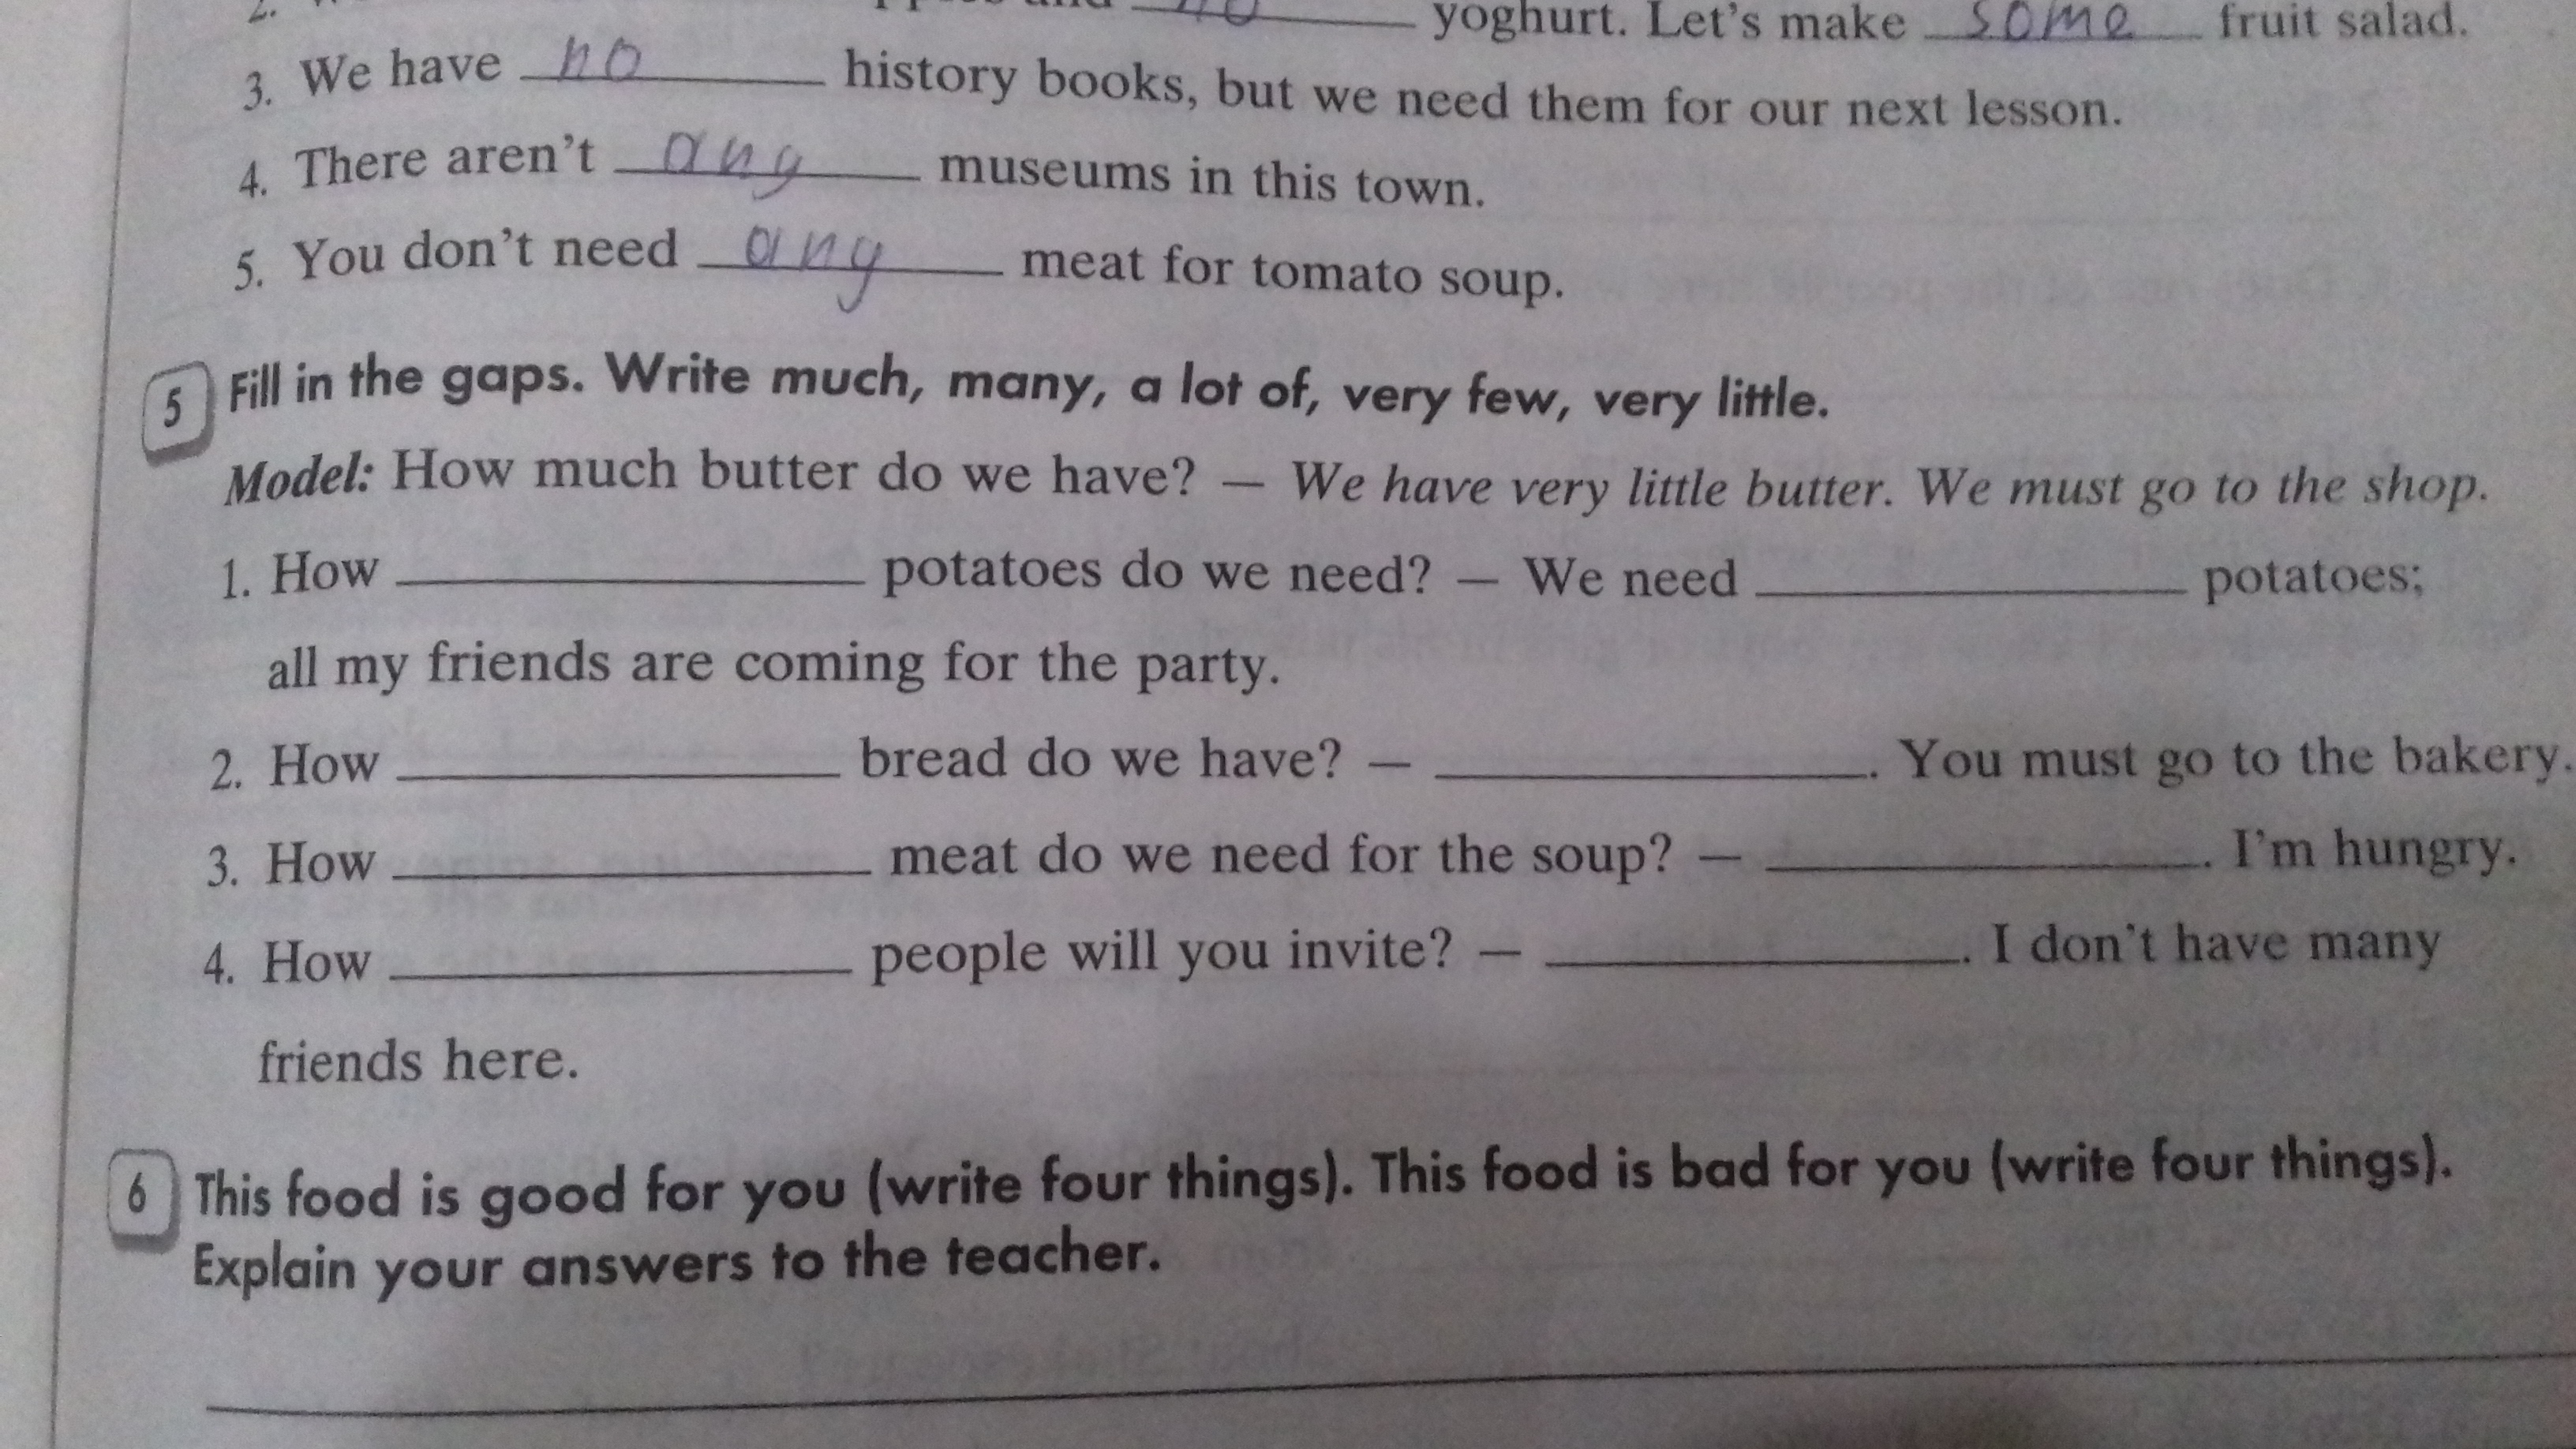 2. no yoghurt. Let's make some fruit salad.
3. We have no history books, but we need them for our next lesson.
4. There aren't any museums in this town.
5. You don't need any meat for tomato soup.
5 Fill in the gaps. Write much, many, a lot of, very few, very little.
Model: How much butter do we have? — We have very little butter. We must go to the shop.
1. How ____ potatoes do we need? — We need ____ potatoes;
all my friends are coming for the party.
2. How ____ bread do we have? — ____. You must go to the bakery.
3. How ____ meat do we need for the soup? — ____. I'm hungry.
4. How ____ people will you invite? — ____. I don't have many
friends here.
6 This food is good for you (write four things). This food is bad for you (write four things).
Explain your answers to the teacher.